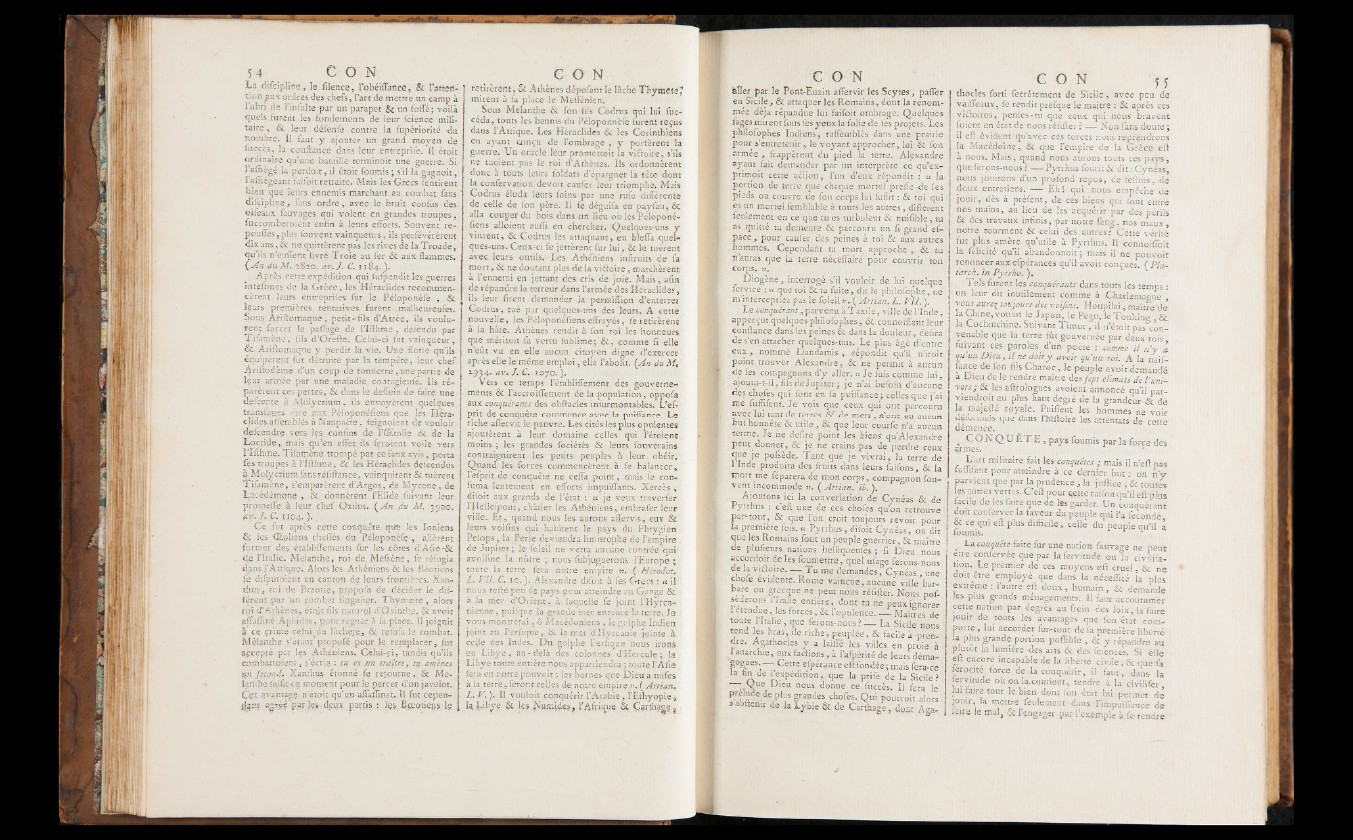 54 CON
La discipline, le silence, l'obéissance, & l'atten-
tion aux ordres des chefs, l'art de mettre un camp à
l'abri de l'insulte par un parapet & un fossé; voilà
quels furent les fondements de leur science mili-
taire, & leur défense contre la supériorité du
nombre. Il faut y ajouter un grand moyen de
succès, la constance dans leur entreprise. Il étoit
ordinaire qu'une bataille terminoit une guerre. Si
l'assiégé la perdoit, il étoit soumis; s'il la gagnoit,
l'assiégeant faisoit retraite. Mais les Grecs sentirent
bien que leurs ennemis marchant au combat sans
discipline, sans ordre, avec le bruit confus des
oiseaux sauvages qui volent en grandes troupes,
succomberoient enfin à leurs efforts. Souvent re-
poussés, plus souvent vainqueurs, ils persévérèrent
dix ans, & ne quittèrent pas les rives de la Troade,
qu'ils n'eussent livré Troie au fer & aux flammes.
(An du M. 2820. av. J. C. 1184.).
Après cette expédition qui suspendit les guerres
intestines de la Grèce, les Héraclides recommen-
cèrent leurs entreprises sur le Péloponèse, &
leurs premières tentatives furent malheureuses.
Sous Aristomaque, petit-fils d'Atrée, ils voulu-
rent forcer le passage de l'Isthme, défendu par
Tisamène, fils d'Oreste. Celui-ci fut vainqueur,
& Aristomaque y perdit la vie. Une flotte qu'ils
équipèrent fut détruite par la tempête, leur chef
Aristodème d'un coup de tonnerre, une partie de
leur armée par une maladie contagieuse. Ils ré-
parèrent ces pertes, & dans le dessein de faire une
descente à Molycrium, ils envoyèrent quelques
transfuges dire aux Péloponésiens que les Héra-
clides assemblés à Naupacte, feignoient de vouloir
descendre vers les confins de l'Œtolie & de la
Locride, mais qu'en effet ils feroient voile vers
l'Isthme. Tisamène trompé par ce faux avis, porta
ses troupes à l'Isthme, & les Héraclides descendus
à Molycrium sans résistance, vainquirent & tuèrent
Tisamène, s'emparèrent d'Argos, de Mycène, de
Lacédémone, & donnèrent l'Elide suivant leur
promesse à leur chef Oxilus. (An du M. 3900.
av. J. C. 1104.).
Ce fut après cette conquête que les Ioniens
& les Œoliens chassés du Péloponèse, allèrent
former des établissements sur les côtes d'Asie &
de l'Italie. Melanthe, roi de Messène, se réfugia
dans l'Attique. Alors les Athéniens & les Bœotiens
se disputoient un canton de leurs frontières. Xan-
thus, roi de Bœotie, proposa de décider le dif-
férent par un combat singulier. Thymœte, alors
roi d'Athènes, étoit fils naturel d'Oxinthe, & avoit
assassiné Aphidus, pour régner à sa place. Il joignit
à ce crime celui de lâcheté, & refusa le combat.
Mélanthe s'étant proposé pour le remplacer, fut
accepté par les Athéniens. Celui-çi, tandis qu'ils
combattoient, s'écria: tu es un traître, tu amènes
un second. Xanthus étonné se retourne, & Me-
lanthe saisit ce moment pour le percer d'un javelot.
Cet avantage n'étoit qu'un assassinat. Il fut cepen-
dant agréé par les deux partis: les Bœotiens se
CON
retirèrent, & Athènes déposant le lâche Thymète,
mirent à sa place le Messénien.
Sous Melanthe & son fils Codrus qui lui suc-
céda, touts les bannis du Péloponnèse furent reçus
dans l'Attique. Les Héraclides & les Corinthiens
en ayant conçu de l'ombrage, y portèrent la
guerre. Un oracle leur promettoit la victoire, s'ils
ne tuoient pas le roi d'Athènes. Ils ordonnèrent
donc à touts leurs soldats d'épargner la tête dont
la conservation devoit causer leur triomphe. Mais
Codrus éluda leurs soins par une ruse différente
de celle de son père. Il se déguisa en paysan, &
alla couper du bois dans un lieu où les Péloponé-
siens alloient aussi en chercher. Quelques-uns y
vinrent, & Codrus les attaquant, en blessa quel-
ques-uns. Ceux-ci se jettèrent sur lui, & le tuèrent
avec leurs outils. Les Athéniens instruits de sa
mort, & ne doutant plus de la victoire, marchèrent
à l'ennemi en jettant des cris de joie. Mais, afin
de répandre la terreur dans l'armée des Héraclides,
ils leur firent demander la permission d'enterrer
Codrus, tué par quelques-uns des leurs. A cette
nouvelle, les Péloponésiens effrayés, se retirèrent
à la hâte. Athènes rendit à son roi les honneurs
que méritoit sa vertu sublime; &, comme si elle
n'eût vu en elle aucun citoyen digne d'exercer
après elle le même emploi, elle l'abolit. (An du M.
2934. av. J. C. 1070.).
Vers ce temps l'établissement des gouverne-
ments & l'accroissement de la population, opposa
aux conquérants des obstacles insurmontables. L'es-
prit de conquête commence avec la puissance. Le
riche asservit le pauvre. Les cités les plus opulentes
ajoutèrent à leur domaine celles qui l'étoient
moins; les grandes sociétés & leurs souverains
contraignirent les petits peuples à leur obéir.
Quand les forces commencèrent à se balancer,
l'esprit de conquête ne cessa point, mais se con-
suma lentement en efforts impuissants. Xercès,
disoit aux grands de l'état: « je veux traverser
l'Hellespont, châtier les Athéniens, embraser leur
ville. Et, quand nous les aurons asservis, eux &
leurs voisins qui habitent le pays du Phrygien
Pelops, la Perse deviendra limitrophe de l'empire
de Jupiter; le soleil ne verra aucune contrée qui
avoisine la nôtre; nous subjuguerons l'Europe;
toute la terre sera notre empire ». (Hérodot.
L. VII. C. 10.). Alexandre disoit à ses Grecs: « il
nous reste peu de pays pour atteindre au Gange &
à la mer d'Orient, à laquelle se joint l'Hyrca-
nienne, puisque la grande mer entoure la terre. Je
vous montrerai, ô Macédoniens, le golphe Indien
joint au Persique, & la mer d'Hyrcanie jointe à
celle des Indes. Du golphe Persique nous irons
en Libye, au-delà des colonnes d'Hercule; la
Libye toute entière nous appartiendra; toute l'Asie
sera en notre pouvoir: les bornes que Dieu a mises
à la terre, seront celles de notre empire ». (Arrian.
L. V.). Il vouloit conquérir l'Arabie, l'Ethyopie,
la Libye & les Numides, l'Afrique & Carthage,
CON
aller par le Pont-Euxin asservir les Scytes, passer
en Sicile, & attaquer les Romains, dont la renom-
mée déja répandue lui faisoit ombrage. Quelques
sages mirent sous ses yeux la folie de ses projets. Les
philosophes Indiens, rassemblés dans une prairie
pour s'entretenir, le voyant approcher, lui & son
armée, frappèrent du pied la terre. Alexandre
ayant fait demander par un interprète ce qu'ex-
primoit cette action, l'un d'eux répondit: « la
portion de terre que chaque mortel presse de ses
pieds ou couvre de son corps lui suffit: & toi qui
es un mortel semblable à touts les autres, différent
seulement en ce que tu es turbulent & nuisible, tu
as quitté ta demeure & parcouru un si grand es-
pace, pour causer des peines à toi & aux autres
hommes. Cependant ta mort approche, & tu
n'auras que la terre nécessaire pour couvrir ton
corps. ».
Diogène, interrogé s'il vouloit de lui quelque
service: « que toi & ta suite, dit le philosophe, ne
m'interceptiez pas le soleil ». (Arrian. L. VII.).
Le conquérant, parvenu à Taxile, ville de l'Inde,
apperçut quelques philosophes, & connoissant leur
constance dans les peines & dans la douleur, désira
de s'en attacher quelques-uns. Le plus âgé d'entre
eux, nommé Dandamis, répondit qu'il n'iroit
point trouver Alexandre, & ne permit à aucun
de ses compagnons d'y aller. « Je suis comme lui,
ajouta-t-il, fils de Jupiter; je n'ai besoin d'aucune
des choses qui sont en sa puissance; celles que j'ai
me suffisent. Je vois que ceux qui ont parcouru
avec lui tant de terres & de mers, n'ont eu aucun
but honnête & utile, & que leur course n'a aucun
terme. Je ne desire point les biens qu'Alexandre
peut donner, & je ne crains pas de perdre ceux
que je possède. Tant que je vivrai, la terre de
l'Inde produira des fruits dans leurs saisons, & la
mort me séparera de mon corps, compagnon sou-
vent incommode ». (Arrian. ib.).
Ajoutons ici la conversation de Cynéas & de
Pyrrhus: c'est une de ces choses qu'on retrouve
par-tout, & que l'on croit toujours revoir pour
la première fois. « Pyrrhus, disoit Cynéas, on dit
que les Romains sont un peuple guerrier, & maître
de plusieurs nations belliqueuses; si Dieu nous
accordoit de les soumettre, quel usage ferons-nous
de la victoire. — Tu me demandes, Cynéas, une
chose évidente. Rome vaincue, aucune ville bar-
bare ou grecque ne peut nous résister. Nous pos-
séderons l'Italie entière, dont tu ne peux ignorer
l'étendue, les forces, & l'opulence. — Maîtres de
toute l'Italie, que ferons-nous? — La Sicile nous
tend les bras, île riche, peuplée, & facile à pren-
dre. Agathocles y a laissé les villes en proie à
l'anarchie, aux factions, à l'aspérité de leurs déma-
gogues. — Cette espérance est fondée; mais sera-ce
la fin de l'expédition, que la prise de la Sicile?
— Que Dieu nous donne ce succès. Il sera le
prélude de plus grandes choses. Qui pourroit alors
s'abstenir de la Lybie & de Carthage, dont Aga-
CON 55
thocles sorti secrètement de Sicile, avec peu de
vaisseaux, se rendit presque le maître: & après ces
victoires, penses-tu que ceux qui nous bravent
soient en état de nous résister; — Non sans doute;
il est évident qu'avec ces forces nous reprendrons
la Macédoine, & que l'empire de la Grèce est
à nous. Mais, quand nous aurons touts ces pays,
que ferons-nous? — Pyrrhus sourit & dit: Cynéas,
nous jouirons d'un profond repos, de festins, de
doux entretiens. — Eh! qui nous empêche de
jouir, dès à présent, de ces biens qui sont entre
nos mains, au lieu de les acquérir par des périls
& des travaux infinis, par notre sang, nos maux,
notre tourment & celui des autres? Cette vérité
fut plus amère qu'utile à Pyrrhus. Il connoissoit
la félicité qu'il abandonnoit; mais il ne pouvoit
renoncer aux espérances qu'il avoit conçues. (Plu-
tarch. in Pyrrho.).
Tels furent les conquérants dans touts les temps:
on leur dit inutilement comme à Charlemagne,
vous aurez toujours des voisins. Houpilai, maître de
la Chine, vouloit le Japon, le Pegu, le Tonking, &
la Cochinchine. Suivant Timur, il n'étoit pas con-
venable que la terre fût gouvernée par deux rois,
suivant ces paroles d'un poète: comme il n'y a
qu'un Dieu, il ne doit y avoir qu'un roi. A la nais-
sance de son fils Charoc, le peuple avoit demandé
à Dieu de le rendre maître des sept climats de l'uni-
vers; & les astrologues avoient annoncé qu'il par-
viendroit au plus haut degré de la grandeur & de
la majesté royale. Puissent les hommes ne voir
désormais que dans l'histoire les attentats de cette
démence.
CONQUÊTE, pays soumis par la force des
armes.
L'art militaire fait les conquêtes; mais il n'est pas
suffisant pour atteindre à ce dernier but: on n'y
parvient que par la prudence, la justice, & toutes
les autres vertus. C'est pour cette raison qu'il est plus
facile de les faire que de les garder. Un conquérant
doit conserver la faveur du peuple qui l'a secondé,
& ce qui est plus difficile, celle du peuple qu'il a
soumis.
La conquête faite sur une nation sauvage ne peut
être conservée que par la servitude ou la civilisa-
tion. Le premier de ces moyens est cruel, & ne
doit être employé que dans la nécessité la plus
extrême: l'autre est doux, humain, & demande
les plus grands ménagements. Il faut accoutumer
cette nation par degrés au frein des loix, la faire
jouir de touts les avantages que son état com-
porte, lui accorder sur-tout de sa première liberté
la plus grande portion possible, & y répandre au
plutôt la lumière des arts & des sciences. Si elle
est encore incapable de la liberté civile, & que sa
férocité force de la conquérir, il faut, dans la
servitude où on la contient, tendre à la civiliser,
lui faire tout le bien dont son état lui permet de
jouir, la mettre seulement dans l'impuissance de
faire le mal, & l'engager par l'exemple à se rendre